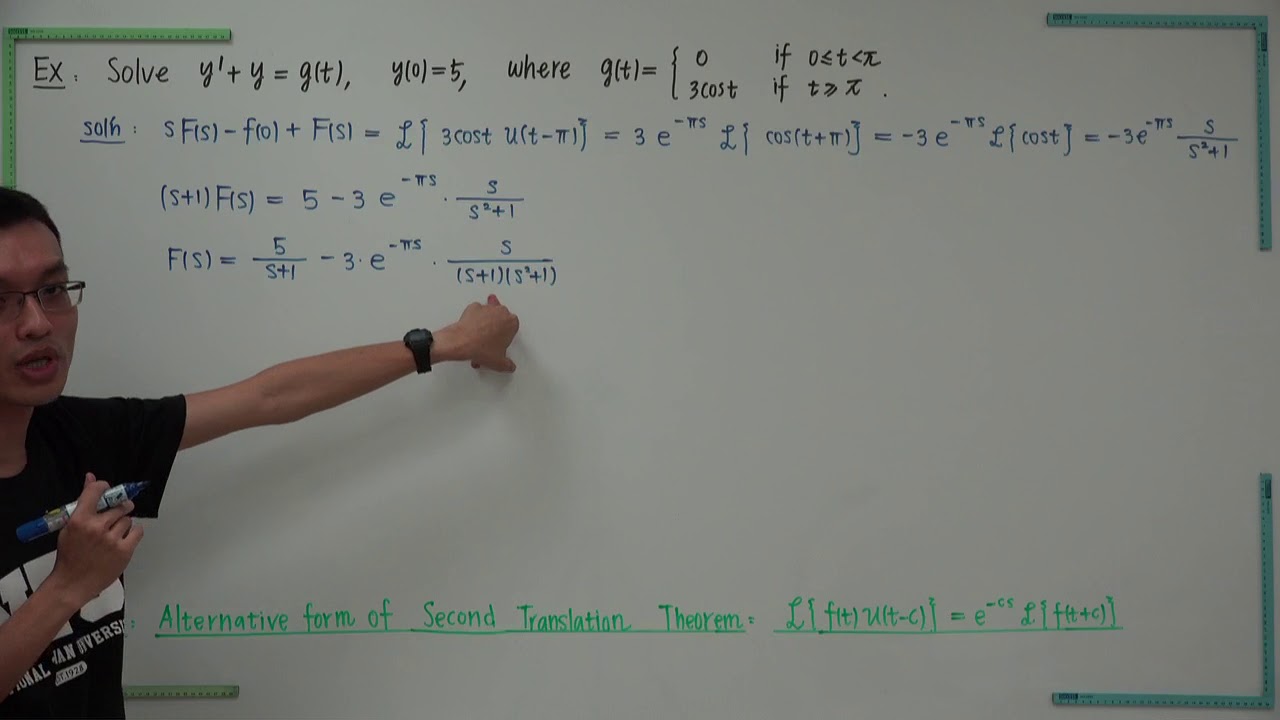 Ex : Solve y' + y = g(t), y(0)=5, where g(t)= { 0 if 0≤t<π
3cost if t≥π .
soln : sF(s) - f(0) + F(s) = ℒ{ 3cost U(t-π)} = 3 e^{-πs} ℒ{ cos(t+π)} = -3 e^{-πs} ℒ{cost} = -3e^{-πs} s/(s²+1)
(s+1)F(s) = 5 - 3 e^{-πs} · s/(s²+1)
F(s) = 5/(s+1) - 3· e^{-πs} · s/((s+1)(s²+1))
: Alternative form of Second Translation Theorem: ℒ{ f(t) U(t-c)} = e^{-cs} ℒ{f(t+c)}